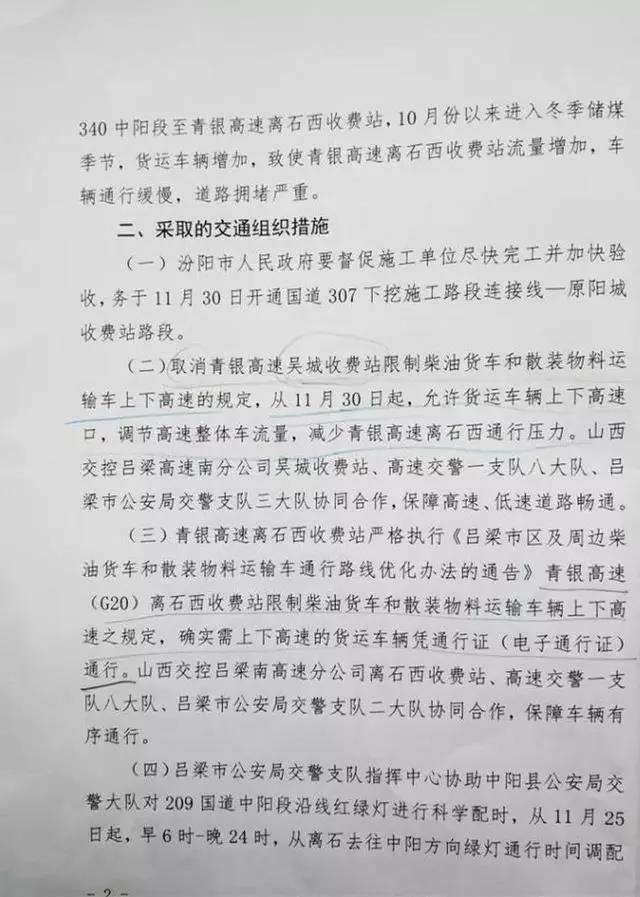 340 中阳段至青银高速离石西收费站,10 月份以来进入冬季储煤
季节,货运车辆增加,致使青银高速离石西收费站流量增加,车
辆通行缓慢,道路拥堵严重。
二、采取的交通组织措施
(一)汾阳市人民政府要督促施工单位尽快完工并加快验
收,务于 11 月 30 日开通国道 307 下挖施工路段连接线—原阳城
收费站路段。
(二)取消青银高速吴城收费站限制柴油货车和散装物料运
输车上下高速的规定,从 11 月 30 日起,允许货运车辆上下高速
口,调节高速整体车流量,减少青银高速离石西通行压力。山西
交控吕梁高速南分公司吴城收费站、高速交警一支队八大队、吕
梁市公安局交警支队三大队协同合作,保障高速、低速道路畅通。
(三)青银高速离石西收费站严格执行《吕梁市区及周边柴
油货车和散装物料运输车通行路线优化办法的通告》青银高速
(G20)离石西收费站限制柴油货车和散装物料运输车辆上下高
速之规定,确实需上下高速的货运车辆凭通行证(电子通行证)
通行。山西交控吕梁南高速分公司离石西收费站、高速交警一支
队八大队、吕梁市公安局交警支队二大队协同合作,保障车辆有
序通行。
(四)吕梁市公安局交警支队指挥中心协助中阳县公安局交
警大队对 209 国道中阳段沿线红绿灯进行科学配时,从 11 月 25
日起,早 6 时-晚 24 时,从离石去往中阳方向绿灯通行时间调配
- 2 -